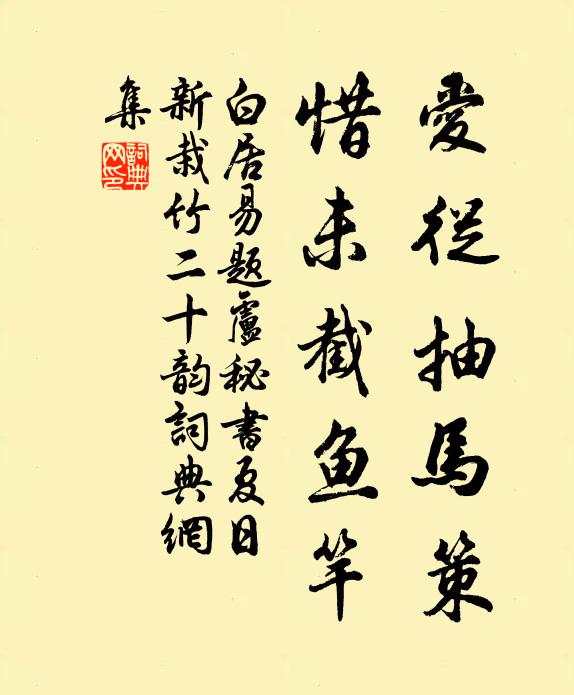 愛從抽馬策
惜未截魚竿
白居易題盧秘書夏日
新栽竹二十韵詞典網
集
詞典
网印